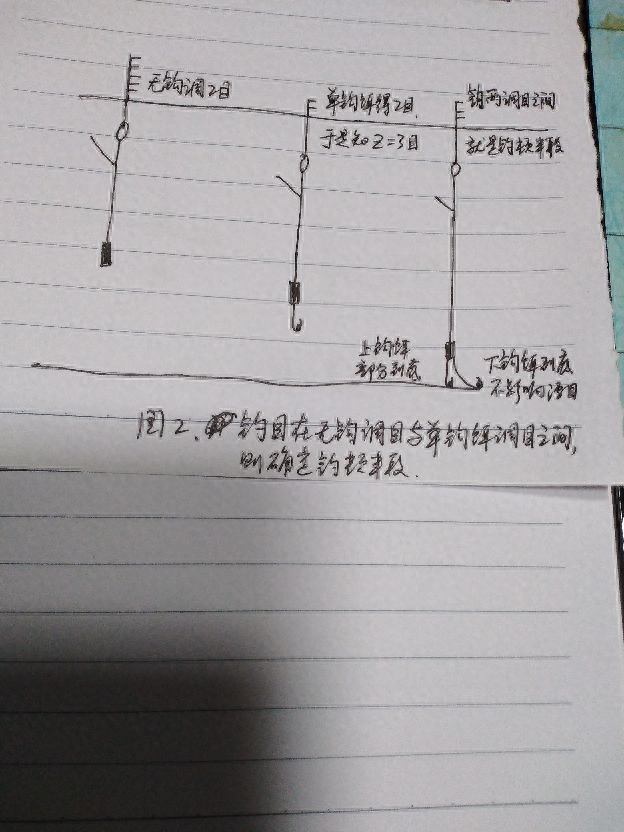 无钩调2目
单钩饵得2目
于是知Z=3目
钓两调目之间
就是钓顿半段
上钩饵
部分到底
下钩饵到底
不影响浮目
图2. 钓目在无钩调目与单钩饵调目之间,
则确定钓顿半段.